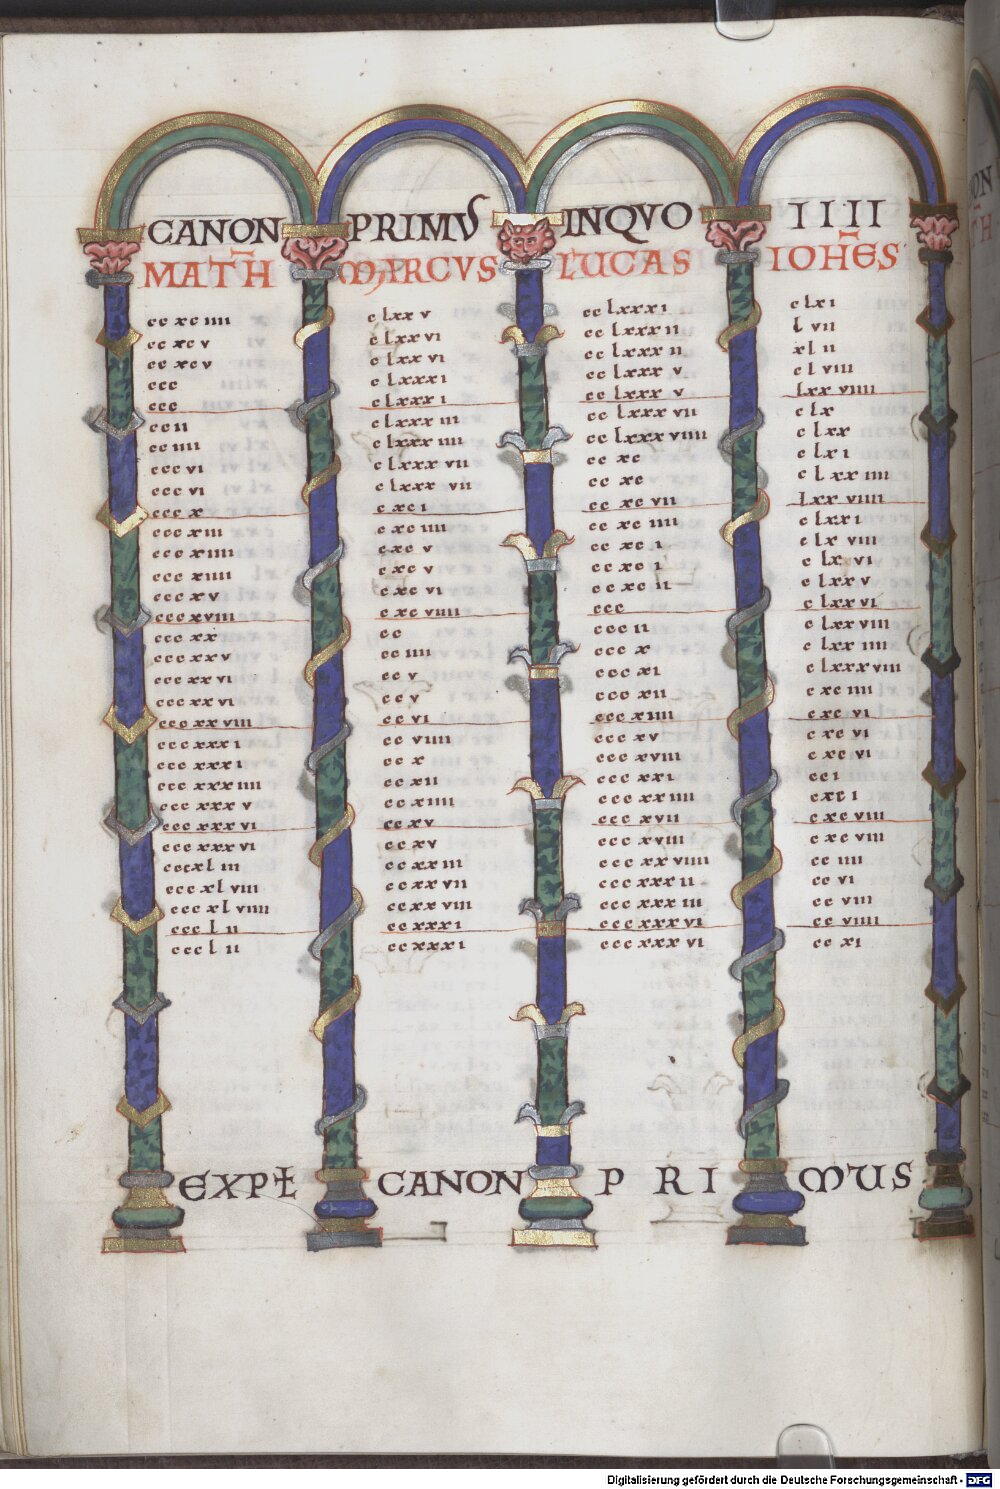 CANON PRIMVS INQVO IIII
MATH MARCVS LUCAS IOHES
cc xc iiii c lxx v cc lxxx i c lxi
cc xc v c lxx vi cc lxxx ii l vii
cc xc v c lxx vi cc lxxx ii xl ii
ccc c lxxx i cc lxxx v c l viii
ccc c lxxx i cc lxxx v lxx viiii
cc ii c lxxx iii cc lxxx vii c lx
cc iiii c lxxx iiii cc lxxx viiii c lxx
ccc vi c lxxx vii cc xc c lx i
ccc vi c lxxx vii cc xc c l xx iiii
ccc x c xc i cc xc vii lxx viiii
ccc xiii c xc iiii cc xc iiii c lxx i
ccc xiiii c xc v cc xc i c lx viii
ccc xiiii c xc v cc xc i c lx vi
ccc xv c xc vi cc xc ii c lxx v
ccc xviii c xc viiii ccc c lxx vi
ccc xx cc ccc ii c lxx viii
ccc xx v cc iiii ccc x c lxx iiii
ccc xx vi cc v ccc xi c lxxx viii
ccc xx vi cc v ccc xii c xc iiii
ccc xx viii cc vi ccc xiiii c xc vi
ccc xxx i cc viiii ccc xv c xc vi
ccc xxx i cc x ccc xviii c xc vi
ccc xxx iiii cc xii ccc xx i cc i
ccc xxx v cc xiiii ccc xx iiii c xc i
ccc xxx vi cc xv ccc xvii c xc viii
ccc xxx vi cc xv ccc xviii c xc viii
cccxl iii cc xx iii ccc xx viiii cc iiii
ccc xl viii cc xx vii ccc xxx ii cc vi
ccc xl viiii cc xx viii ccc xxx iii cc viii
ccc l ii cc xxx i ccc xxx vi cc viiii
ccc l ii cc xxx i ccc xxx vi cc xi
EXPŁ CANON PRIMUS
Digitalisierung gefördert durch die Deutsche Forschungsgemeinschaft - DFG